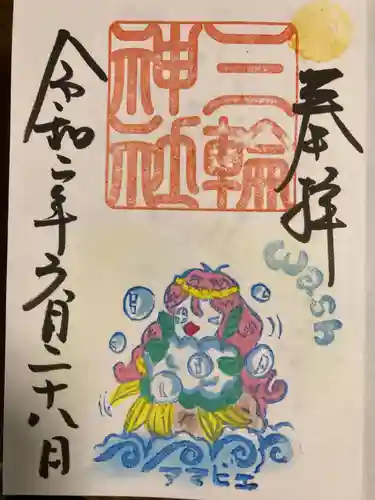 奉拝
三輪
神社
Wash
令和二年六月二十八日
アマビエ